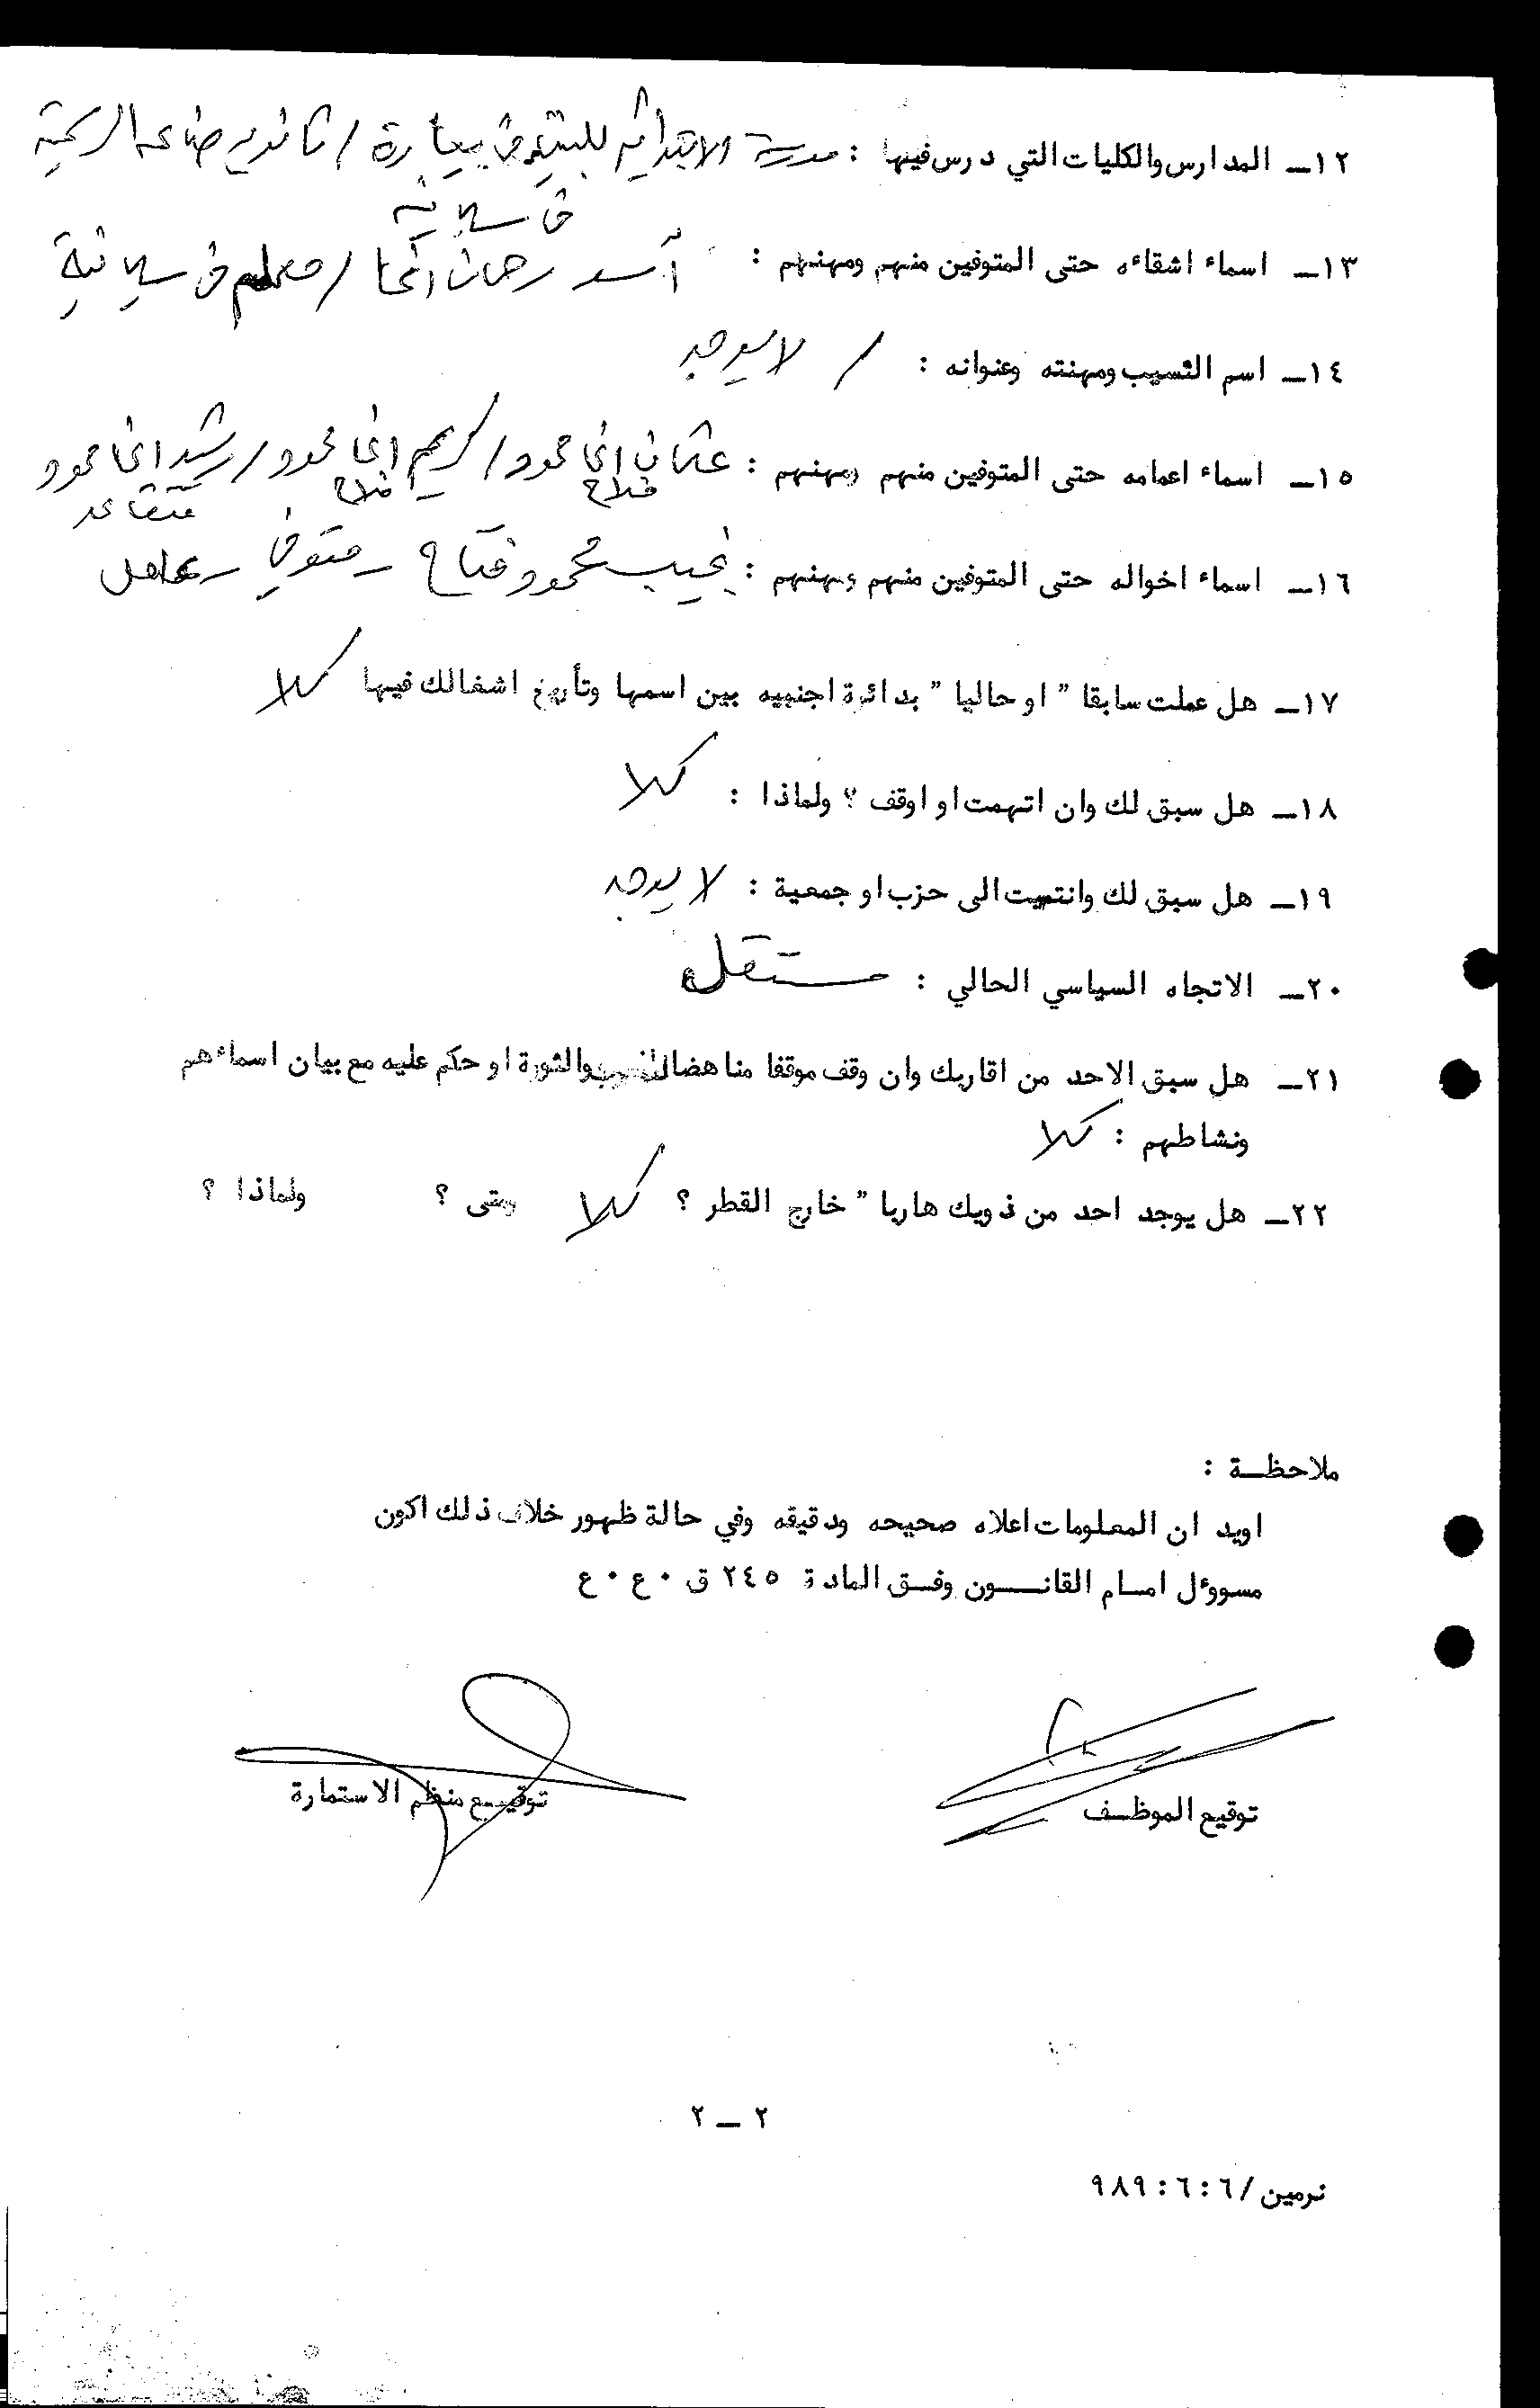 ١٢ــ المدارس والكليات التي درس فيها : مدرسة الابتدائية للبنين في بيارة / ثانوية صناعة
في سليمانية
١٣ــ اسماء اشقاءه حتى المتوفين منهم ومهنهم : أسد رحمان اغا / معلم في سليمانية
١٤ــ اسم النسيب ومهنته وعنوانه : / لا يوجد
١٥ــ اسماء اعمامه حتى المتوفين منهم ومهنهم : عثمان اغا محمود / كريم اغا محمود / رشيد اغا محمود
فلاح فلاح متقاعد
١٦ــ اسماء اخواله حتى المتوفين منهم ومهنهم : نجيب محمود فتاح ــ متوفي ــ عامل
١٧ــ هل عملت سابقا " او حاليا " بدائرة اجنبيه بين اسمها وتأريخ اشغالك فيها كلا
١٨ــ هل سبق لك وان اتهمت او اوقف ؟ ولماذا : كلا
١٩ــ هل سبق لك وانتميت الى حزب او جمعية : لا يوجد
٢٠ــ الاتجاه السياسي الحالي : مستقل
٢١ــ هل سبق الاحد من اقاربك وان وقف موقفا مناهضا والثورة او حكم عليه مع بيان اسماءهم
ونشاطهم : كلا
٢٢ــ هل يوجد احد من ذويك هاربا " خارج القطر ؟ كلا ومتى ؟ ولماذا ؟
ملاحظــة :
اويد ان المعلومات اعلاه صحيحه ودقيقه وفي حالة ظهور خلاف ذلك اكون
مسوول امــام القانــــون وفــق المادة ٢٤٥ ق ٠ ع ٠ ع
توقيع الموظــف
توقيــع منظم الاستمارة
٢ ــ ٢
نرمين / ٦ : ٦ : ٩٨٩